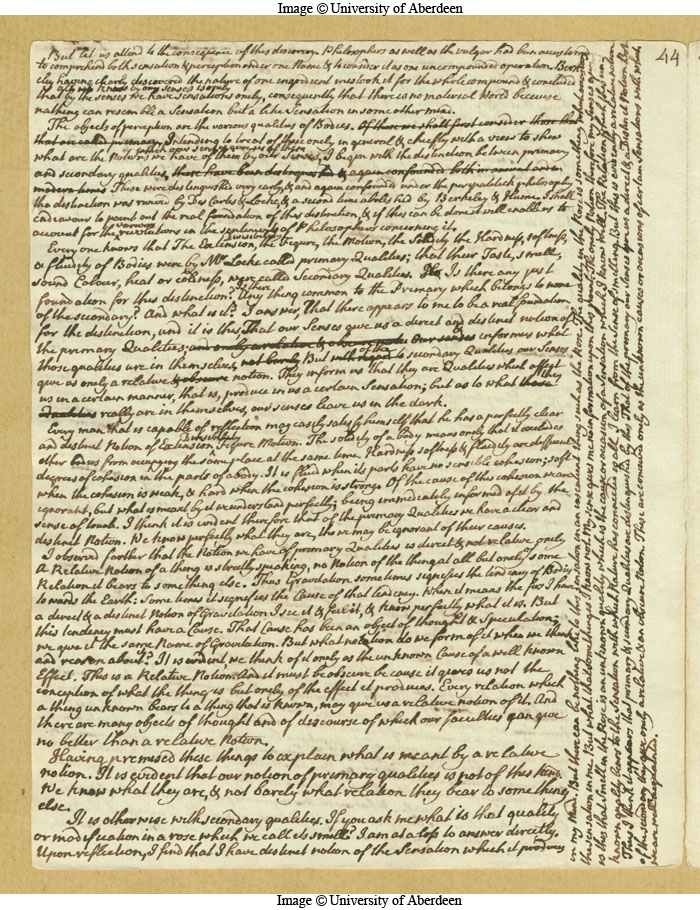 Image © University of Aberdeen
44
But let us attend to the consequence of this discovery. Philosophers as well as the vulgar had been accustomed
to comprehend both sensation & perception under one Name & to consider it as one uncompounded operation. Berk
eley having clearly discovered the nature of one ingredient mistook it for the whole compound & concludes
that by the senses we have sensations only, consequently that there is no material World because
nothing can resemble a Sensation but a like Sensation in some other mind.
The objects of perception are the various qualities of Bodies. Of these we shall first consider those that
that are called primary. Intending to treat of these only in general & chiefly with a view to shew
what are the Notions we have of them by our Senses, I begin with the distinction between primary
and secondary qualities, these have been distinguished & again confounded both in ancient and in
modern times These were distinguished very early, & again confounded under the peripatetick philosophy,
the distinction was revived by Des Cartes & Locke, & a second time abolished by Berkeley & Hume. I shall
endeavour to point out the real foundation of this distinction, & if this can be done it will enable us to
account for the various revolutions in the sentiments of Philosophers concerning it.
Every one knows that The Extension, the Divisibility the Figure, the Motion, the Solidity the Hardness, softness,
& fluidity of Bodies were by Mr Locke called primary Qualities; that their Taste, smell,
sound Colour, heat or coldness, were called Secondary Qualities. Is there any just
foundation for this distinction? Is there Any thing common to the Primary which belongs to none
of the secondary? And what is it? I answer, That there appears to me to be a real foundation
for the distinction, and it is this, That our Senses give us a direct and distinct notion of
the primary Qualities, and only a relative & obscure Our senses inform us what
those qualities are in themselves, not barely But of the with regard to secondary Qualities our Senses
give us only a relative & obscure notion. They inform us that they are Qualities which affect
us in a certain manner, that is, produce in us a certain Sensation; but as to what they those
Qualities really are in themselves, our senses leave us in the dark.
Every man that is capable of reflection may easily satisfy himself that he has a perfectly clear
and distinct Notion of Extension Divisibility Figure Motion. The solidity of a body means only that it excludes
other bodies from occupying the same place at the same time. Hardness softness & fluidity are different
degrees of cohesion in the parts of a body. It is fluid when its parts have no sensible cohesion; soft
when the cohesion is weak, & hard when the cohesion is strong. Of the cause of this cohesion we are
ignorant, but what is meant by it we understand perfectly; being immediately informed of it by the
sense of touch. I think it is evident therefore that of the primary Qualities we have a clear and
distinct Notion. We know perfectly what they are, tho we may be ignorant of their causes.
I observed farther that the Notion we have of primary Qualities is direct & not relative only
A Relative Notion of a thing is strictly speaking, no Notion of the thing at all but only of some
Relation it bears to something else. Thus Gravitation sometimes signifies the tendency of Bodies
towards the Earth: Some times it signifies the Cause of that tendency. When it means the first I have
a direct & a distinct Notion of Gravitation I see it & feel it, & know perfectly what it is. But
this tendency must have a Cause. That Cause has been an object of thought & Speculation;
we give it the same Name of Gravitation. But what notion do we form of it when we think
and reason about? It is evident we think of it only as the unknown Cause of a well known
Effect. This is a Relative Notion. And it must be obscure because it gives us not the
conception of what the thing is but only of the effect it produces. Every relation which
a thing unknown bears to a thing that is known, may give us a relative notion of it. And
there are many objects of thought and of discourse of which our faculties can give
no better than a relative Notion.
Having premised these things to explain what is meant by a relative
notion. It is evident that our notion of primary qualities is not of this kind.
We know what they are, & not barely what relation they bear to something
else.
It is otherwise with secondary qualities. If you ask me what is that quality
or modification in a rose which we call its smell? I am at a loss to answer directly.
Upon reflection, I find that I have distinct notion of the Sensation which it produces
in my mind. But there can be nothing like to this sensation in an insentient being such as the Rose. The quality in the Rose is something which
the sensation in me. But what that something is I know not. My senses give me no information upon this point. The only Notion therefore
is this that Smell in the Rose is an unknown quality which
known quality bears to the sensation with which Nature has connected it. I learn from the sense of smelling. But this is evidently a relative notion
Thus I think it appears that primary & secondary Qualities are distinguished by this That of the primary our senses give us a direct & a distinct Notion. But
of the secondary they give only a relative & an obscure Notion. These are conceived only as the unknown causes or occasions of certain Sensations with which
we are well acquainted.
Image © University of Aberdeen